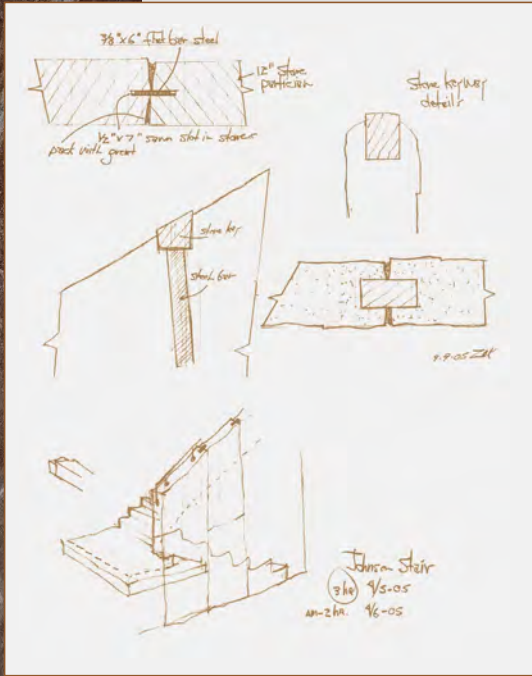 3/8"x6" flat bar steel
12" Stone
partition
1/2"x7" sawn slot in stones
pack with grout
Stone keyway
details
stone key
steel bar
9-9-05
Johnson Stair
3 hrs 4/5-05
2 hrs. 4/6-05